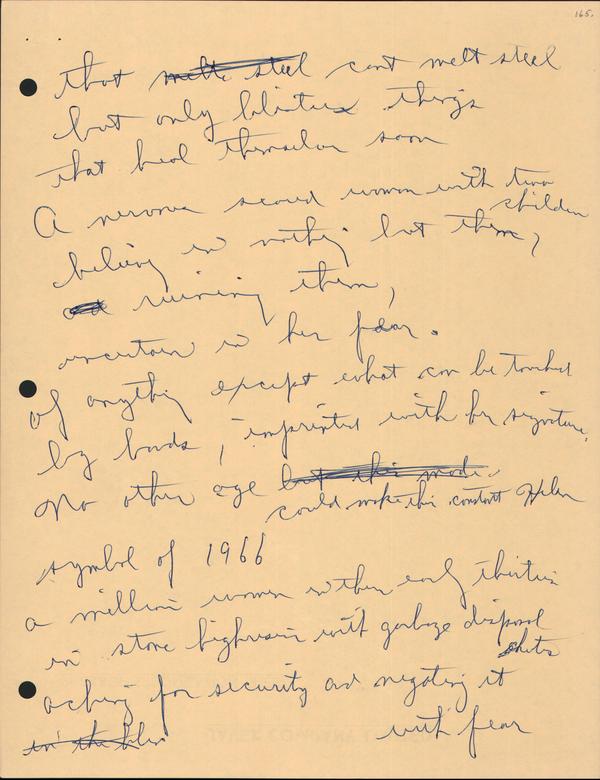 165.
that melts steel cant melt steel
but only blisters things
that heal themselves soon
A nervous scared woman with two
children
believing in nothing but them,
ruining them,
uncertain in her fear.
of anything except what can be touched
by hands, imprinted with her signature,
No other age but this made
could make this constant Helen
symbol of 1966
a million women in their early thirties
in stone highrises with garbage disposal
chutes
aching for security and negating it
in the
with fear